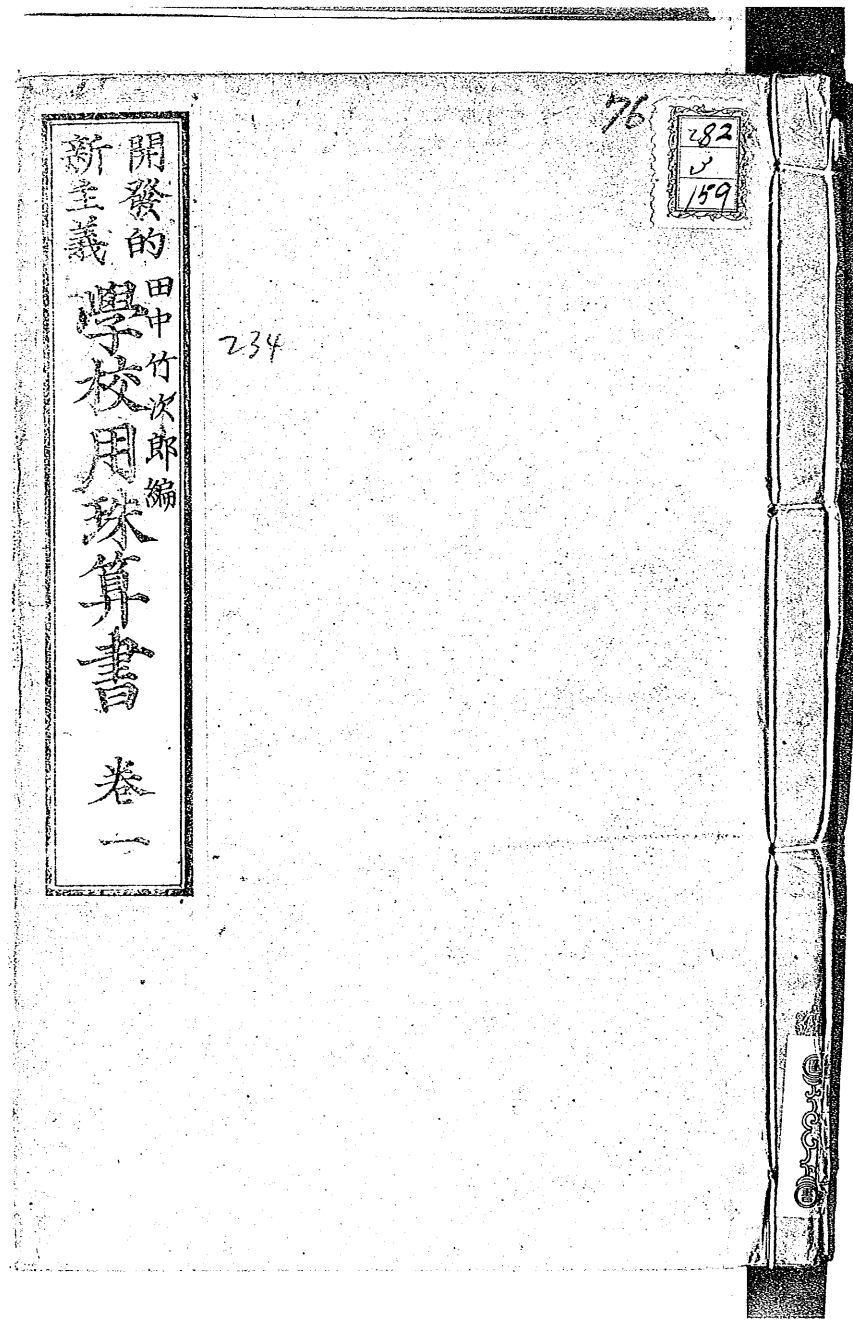 76
282
3
159
開發的
新主義
田中竹次郎編
學校用珠算書 卷一
234